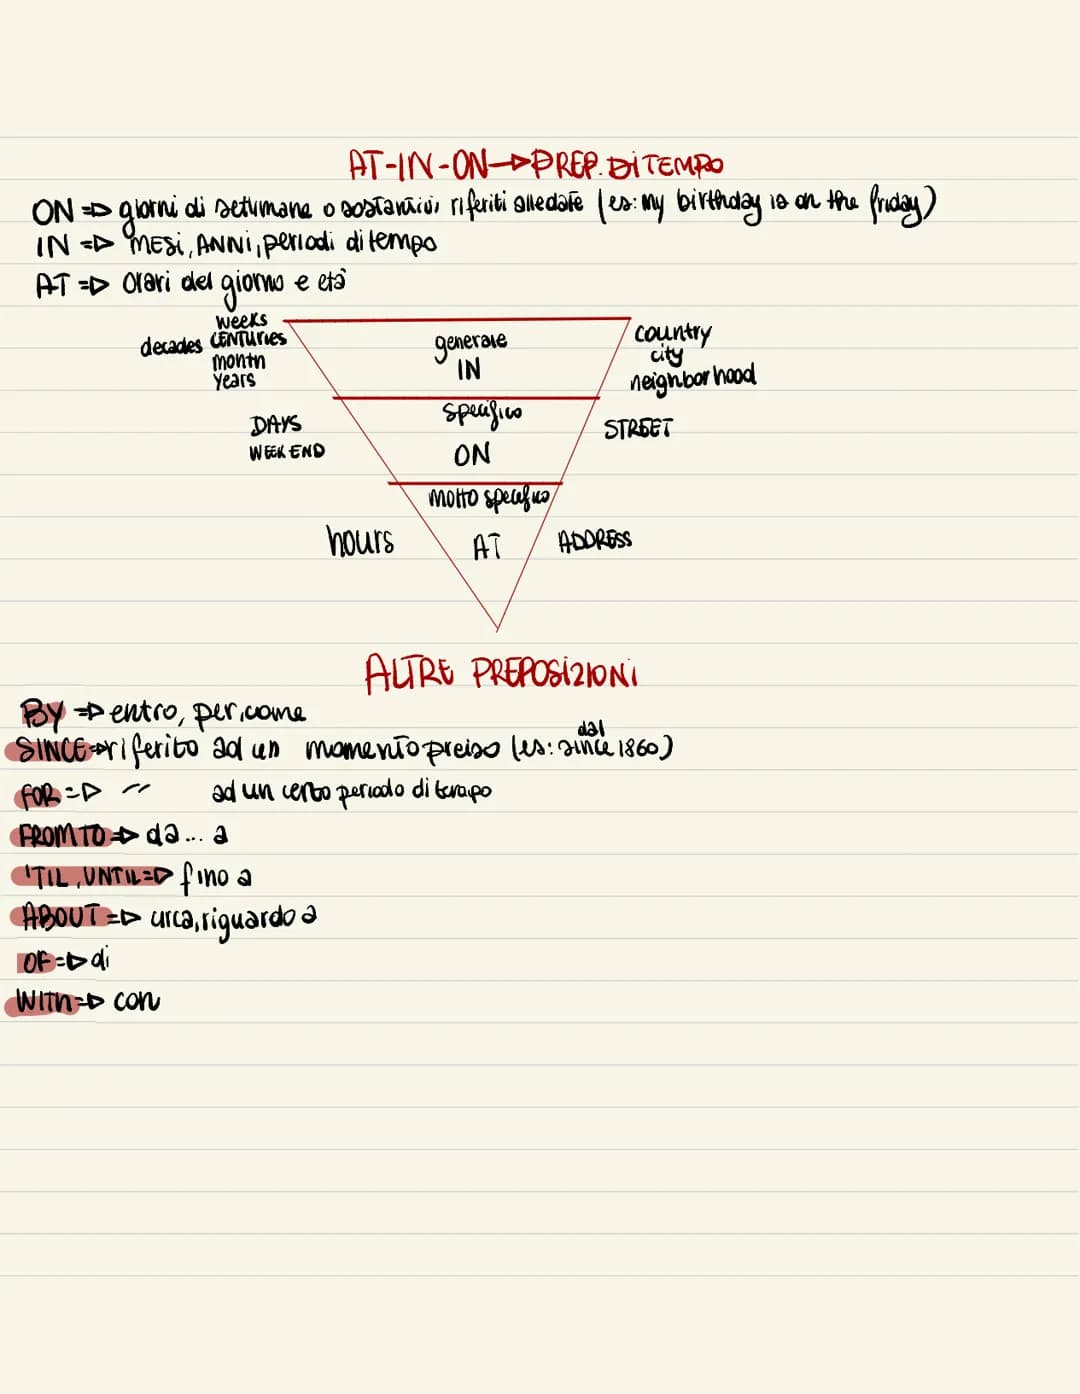 AT-IN-ON→PREP. DI TEMPO
ON => giorni di settimana o sostantivi riferiti alle date (es: my birthday is on the friday)
IN => MESI, ANNI, periodi di tempo
AT => Orari del giorno e età
weeks
decades CENTURIES
month
Years
generale
IN
country
city
neighborhood
DAYS
WEEK END
specifico
ON
STREET
hours
molto specifico
AT
ADDRESS
ALTRE PREPOSIZIONI
BY => entro, per, come
dal
SINCE => riferito ad un momento preciso (es: since 1860)
FOR => " ad un certo periodo di tempo
FROM TO => da... a
'TIL, UNTIL => fino a
ABOUT => circa, riguardo a
OF => di
WITH => con